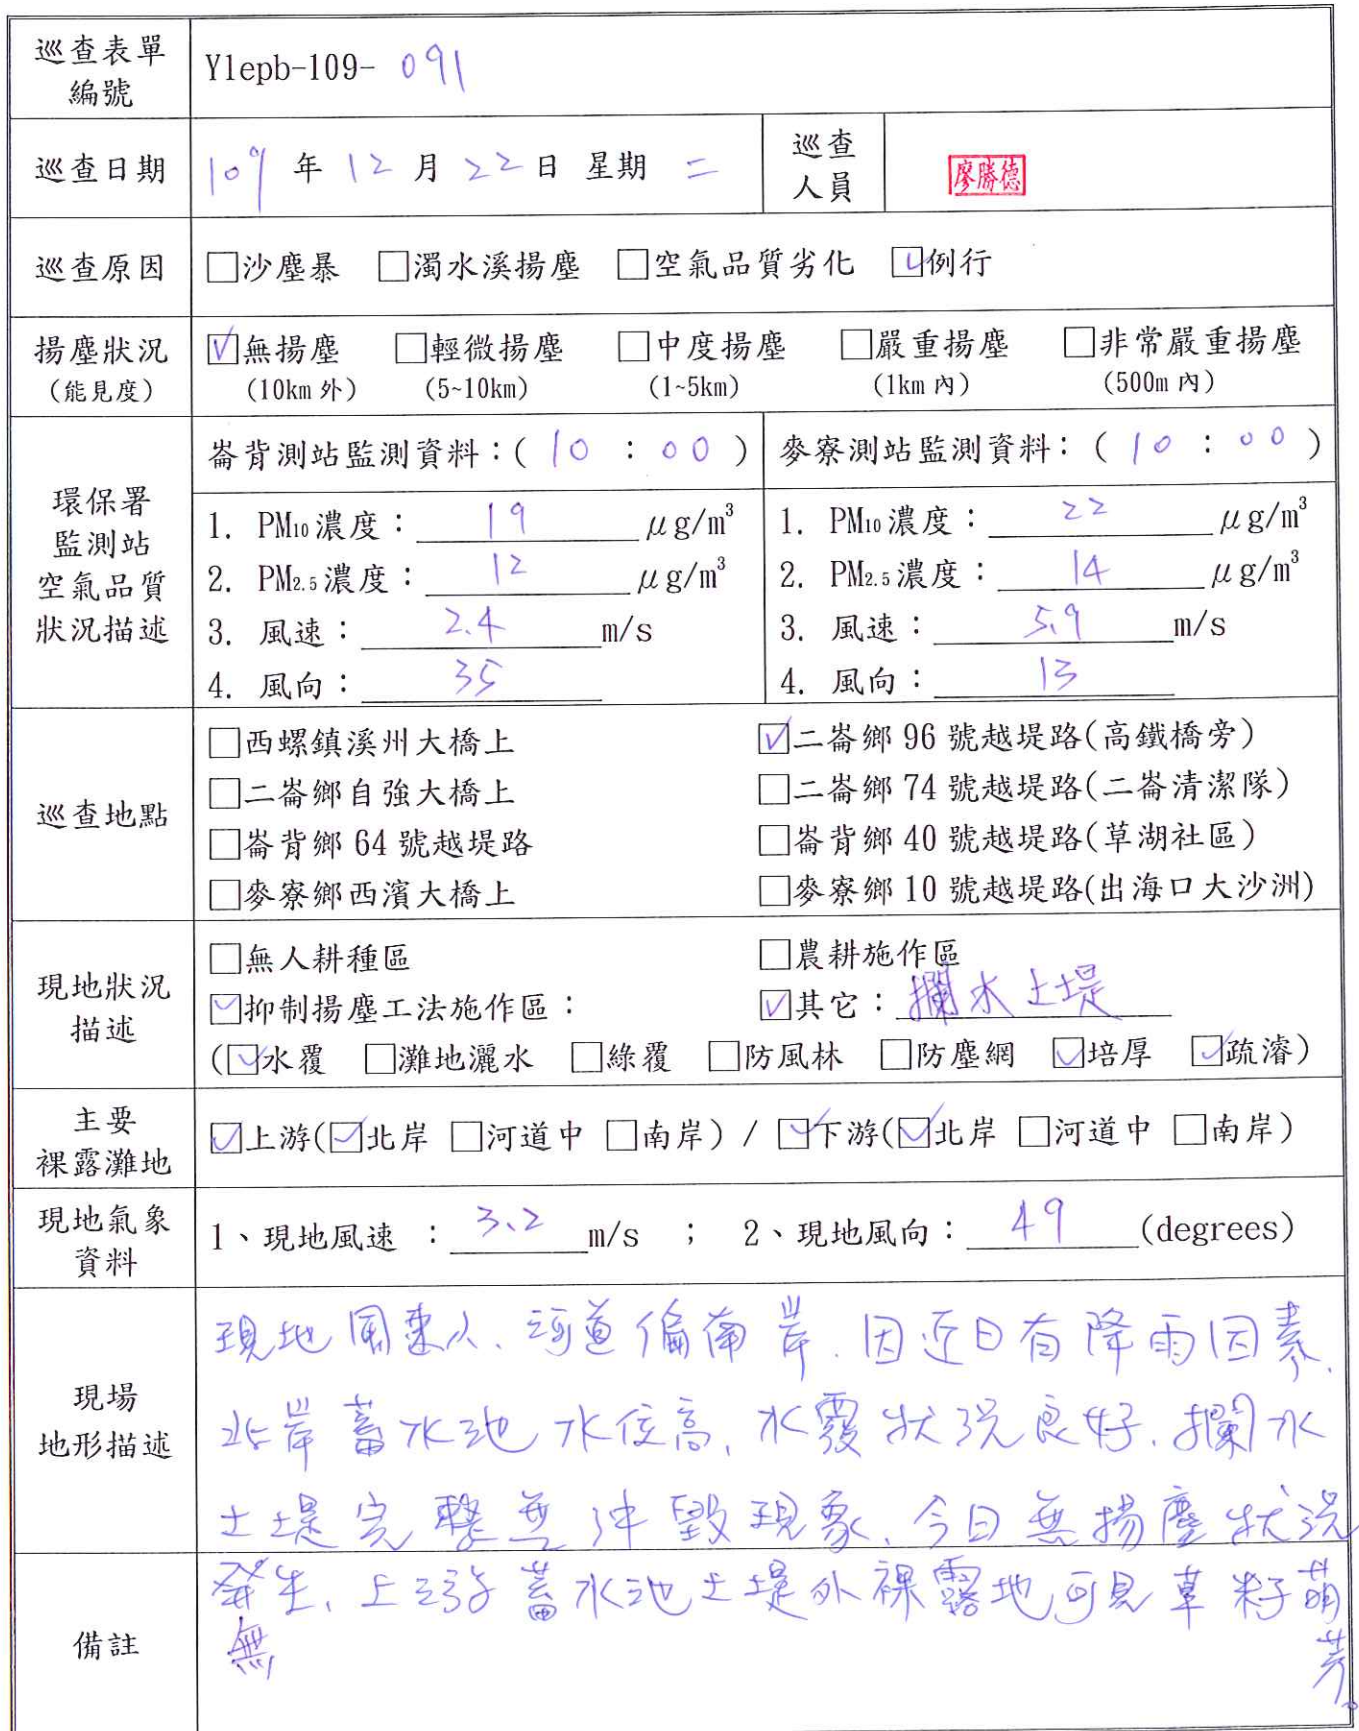 巡查表單
編號
Ylepb-109- 091
巡查日期
109 年 12 月 22 日 星期 二
巡查
人員
廖勝德
巡查原因
□沙塵暴 □濁水溪揚塵 □空氣品質劣化 ☑例行
揚塵狀況
(能見度)
☑無揚塵 □輕微揚塵 □中度揚塵 □嚴重揚塵 □非常嚴重揚塵
(10km 外) (5~10km) (1~5km) (1km 內) (500m 內)
環保署
監測站
空氣品質
狀況描述
崙背測站監測資料：( 10 : 00 )
1. PM10 濃度： 19 μg/m³
2. PM2.5 濃度： 12 μg/m³
3. 風速： 2.4 m/s
4. 風向： 35
麥寮測站監測資料： ( 10 : 00 )
1. PM10 濃度： 22 μg/m³
2. PM2.5 濃度： 14 μg/m³
3. 風速： 5.9 m/s
4. 風向： 13
巡查地點
□西螺鎮溪州大橋上 ☑二崙鄉 96 號越堤路(高鐵橋旁)
□二崙鄉自強大橋上 □二崙鄉 74 號越堤路(二崙清潔隊)
□崙背鄉 64 號越堤路 □崙背鄉 40 號越堤路(草湖社區)
□麥寮鄉西濱大橋上 □麥寮鄉 10 號越堤路(出海口大沙洲)
現地狀況
描述
□無人耕種區 □農耕施作區
☑抑制揚塵工法施作區： ☑其它：攔水土堤
(☑水覆 □灘地灑水 □綠覆 □防風林 □防塵網 ☑培厚 ☑疏濬)
主要
裸露灘地
☑上游(☑北岸 □河道中 □南岸) / ☑下游(☑北岸 □河道中 □南岸)
現地氣象
資料
1、現地風速 ： 3.2 m/s ； 2、現地風向： 49 (degrees)
現場
地形描述
現地風速小、河道偏南岸.因近日有降雨因素、
北岸蓄水池水位高、水覆狀況良好.攔水
土堤完整無沖毀現象、今日無揚塵狀況
發生、上游蓄水池土堤外裸露地可見草籽萌
芽。
備註
無